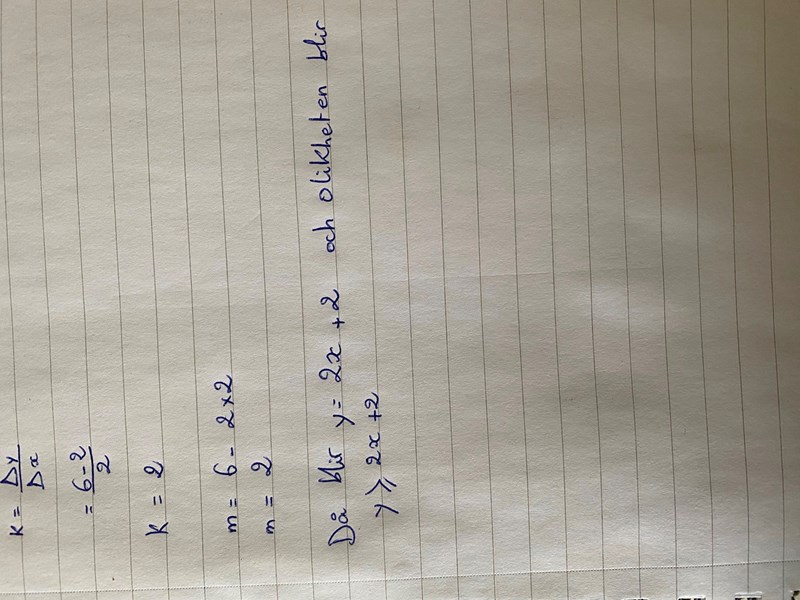 K = Δy/Δx
= 6-2/2
K = 2
m = 6 - 2×2
m = 2
Då blir y = 2x + 2 och olikheten blir
y ⩾ 2x + 2